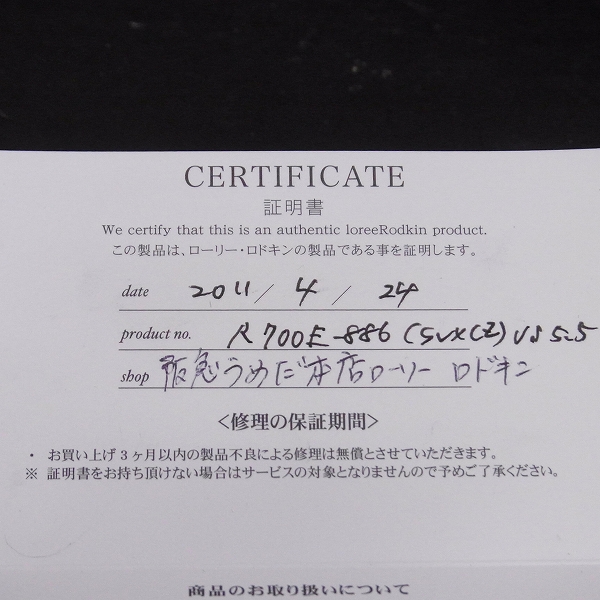 CERTIFICATE
証明書
We certify that this is an authentic loreeRodkin product.
この製品は、ローリー・ロドキンの製品である事を証明します。
date 2011 / 4 / 24
product no. R700E-886 (SVXCZ) US 5.5
shop 阪急うめだ本店ローリー ロドキン
<修理の保証期間>
・ お買い上げ3ヶ月以内の製品不良による修理は無償とさせていただきます。
※ 証明書をお持ち頂けない場合はサービスの対象となりませんので予めご了承ください。
商品のお取り扱いについて